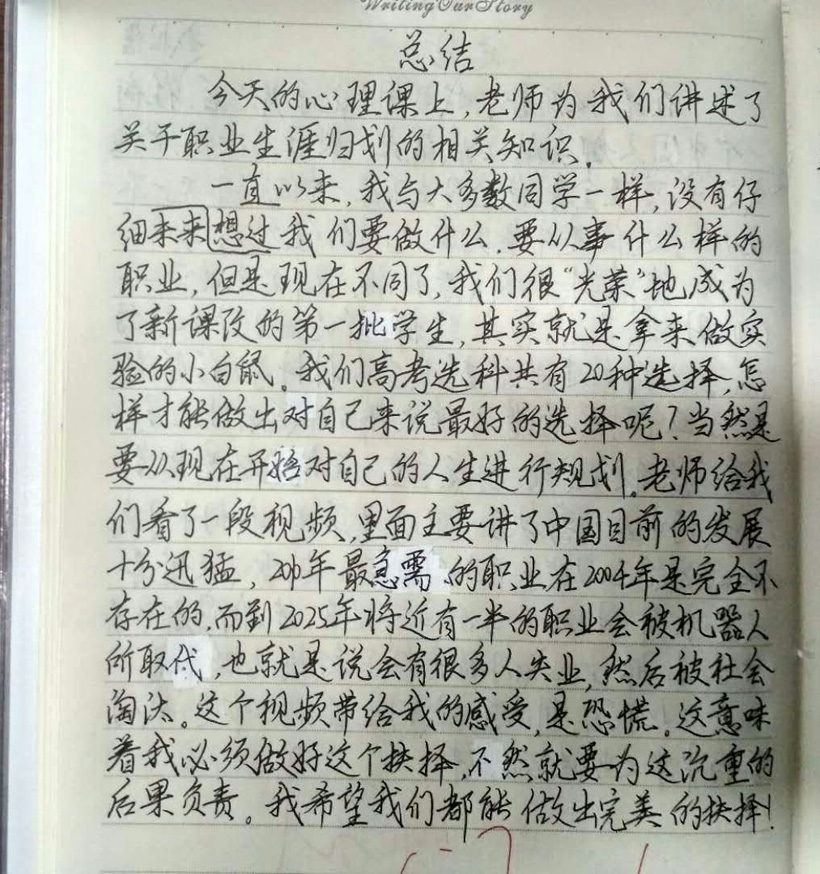 Writing Our Story
总结
今天的心理课上，老师为我们讲述了
关于职业生涯归划的相关知识。
一直以来，我与大多数同学一样，没有仔
细未来想过我们要做什么，要从事什么样的
职业，但是现在不同了，我们很“光荣”地成为
了新课改的第一批学生，其实就是拿来做实
验的小白鼠。我们高考选科共有20种选择，怎
样才能做出对自己来说最好的选择呢？当然是
要从现在开始对自己的人生进行规划。老师给我
们看了一段视频，里面主要讲了中国目前的发展
十分迅猛，年最急需的职业在2004年是完全不
存在的，而到2025年将近有一半的职业会被机器人
所取代，也就是说会有很多人失业，然后被社会
淘汰。这个视频带给我的感受，是恐慌。这意味
着我必须做好这个抉择，不然就要为这沉重的
后果负责。我希望我们都能做出完美的抉择！